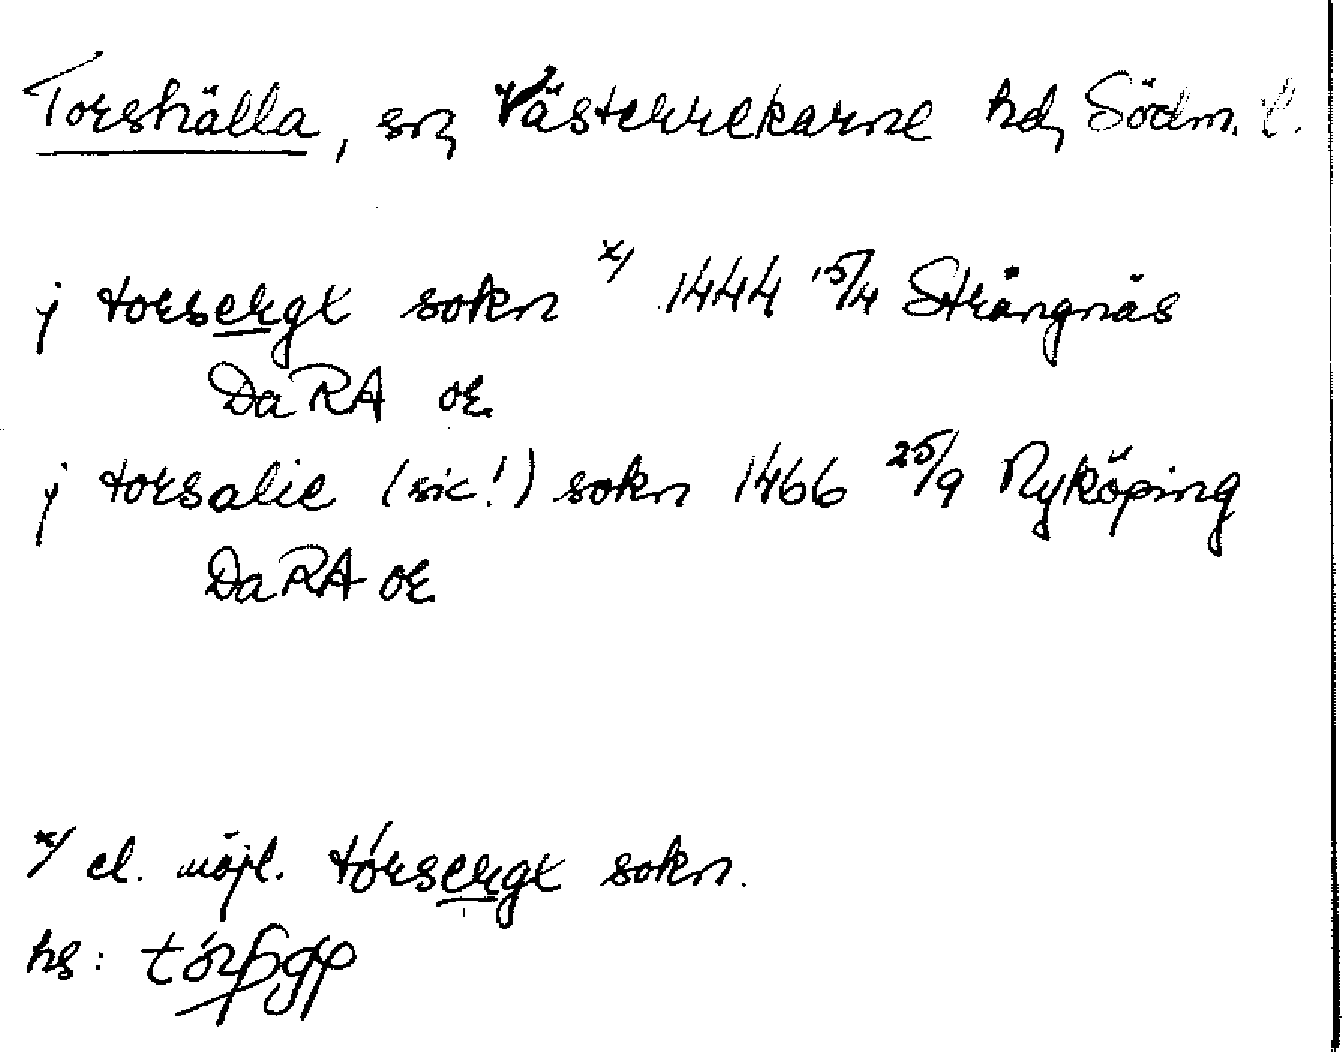 Torshälla, sn, Västerrekarne hd, Södm. l.
j torsergx sokn x/ 1444 15/4 Strängnäs
DaRA or.
j torsalie (sic!) sokn 1466 25/9 Nyköping
DaRA or
x/ el. möjl. tórsergx sokn.
hs: